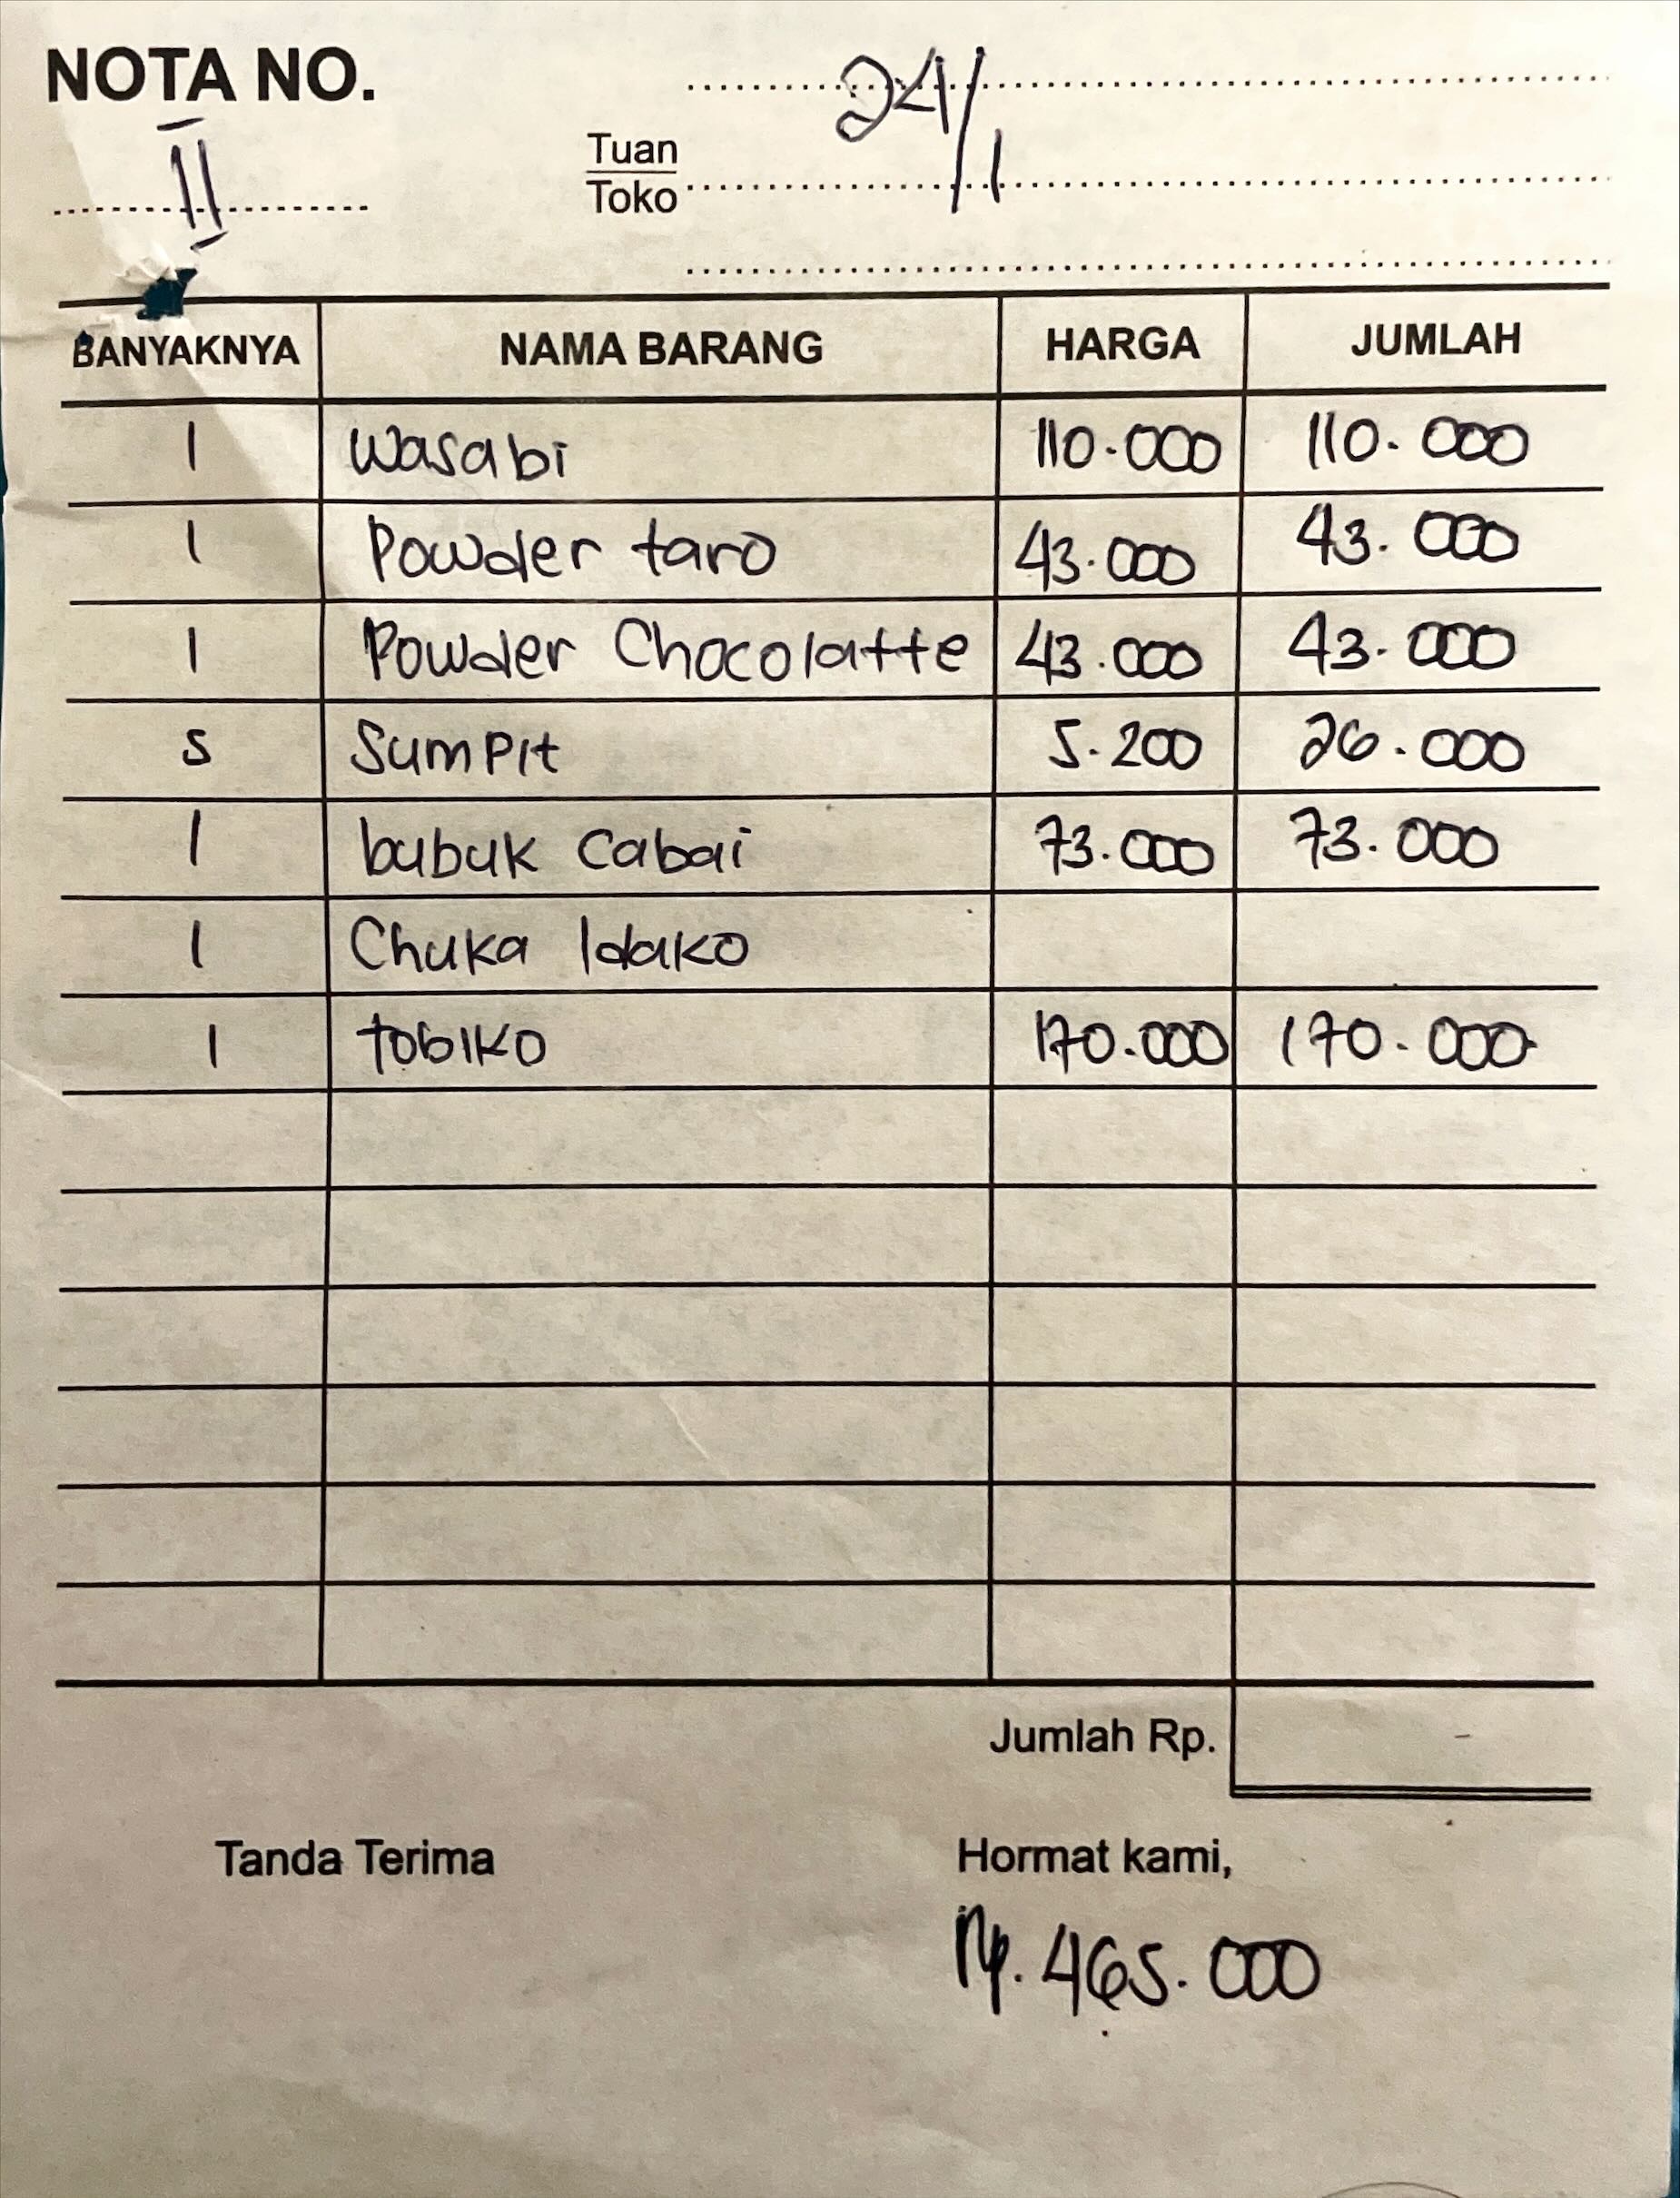 NOTA NO.
II
24/1
Tuan
Toko
BANYAKNYA NAMA BARANG HARGA JUMLAH
1 Wasabi 110.000 110.000
1 Powder taro 43.000 43.000
1 Powder Chocolatte 43.000 43.000
5 Sumpit 5.200 26.000
1 bubuk Cabai 73.000 73.000
1 Chuka Idako
1 tobiko 170.000 170.000
Jumlah Rp.
Tanda Terima Hormat kami,
Rp. 465.000